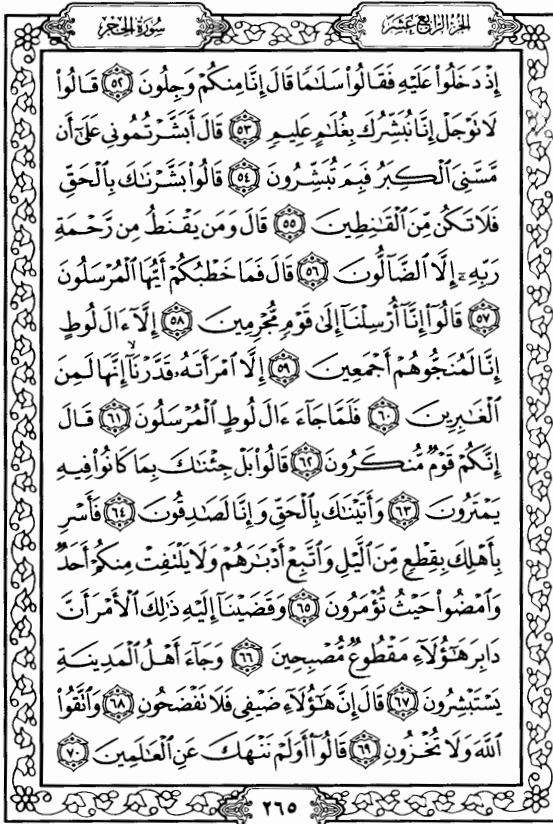 الجزء الرابع عشر
سورة الحجر
إِذْ دَخَلُوا۟ عَلَيْهِ فَقَالُوا۟ سَلَـٰمًا قَالَ إِنَّا مِنكُمْ وَجِلُونَ ٥٢ قَالُوا۟
لَا تَوْجَلْ إِنَّا نُبَشِّرُكَ بِغُلَـٰمٍ عَلِيمٍ ٥٣ قَالَ أَبَشَّرْتُمُونِى عَلَىٰٓ أَن
مَّسَّنِىَ ٱلْكِبَرُ فَبِمَ تُبَشِّرُونَ ٥٤ قَالُوا۟ بَشَّرْنَـٰكَ بِٱلْحَقِّ
فَلَا تَكُن مِّنَ ٱلْقَـٰنِطِينَ ٥٥ قَالَ وَمَن يَقْنَطُ مِن رَّحْمَةِ
رَبِّهِۦٓ إِلَّا ٱلضَّآلُّونَ ٥٦ قَالَ فَمَا خَطْبُكُمْ أَيُّهَا ٱلْمُرْسَلُونَ
٥٧ قَالُوٓا۟ إِنَّآ أُرْسِلْنَآ إِلَىٰ قَوْمٍ مُّجْرِمِينَ ٥٨ إِلَّآ ءَالَ لُوطٍ
إِنَّا لَمُنَجُّوهُمْ أَجْمَعِينَ ٥٩ إِلَّا ٱمْرَأَتَهُۥ قَدَّرْنَآ ۙ إِنَّهَا لَمِنَ
ٱلْغَـٰبِرِينَ ٦٠ فَلَمَّا جَآءَ ءَالَ لُوطٍ ٱلْمُرْسَلُونَ ٦١ قَالَ
إِنَّكُمْ قَوْمٌ مُّنكَرُونَ ٦٢ قَالُوا۟ بَلْ جِئْنَـٰكَ بِمَا كَانُوا۟ فِيهِ
يَمْتَرُونَ ٦٣ وَأَتَيْنَـٰكَ بِٱلْحَقِّ وَإِنَّا لَصَـٰدِقُونَ ٦٤ فَأَسْرِ
بِأَهْلِكَ بِقِطْعٍ مِّنَ ٱلَّيْلِ وَٱتَّبِعْ أَدْبَـٰرَهُمْ وَلَا يَلْتَفِتْ مِنكُمْ أَحَدٌ
وَٱمْضُوا۟ حَيْثُ تُؤْمَرُونَ ٦٥ وَقَضَيْنَآ إِلَيْهِ ذَٰلِكَ ٱلْأَمْرَ أَنَّ
دَابِرَ هَـٰٓؤُلَآءِ مَقْطُوعٌ مُّصْبِحِينَ ٦٦ وَجَآءَ أَهْلُ ٱلْمَدِينَةِ
يَسْتَبْشِرُونَ ٦٧ قَالَ إِنَّ هَـٰٓؤُلَآءِ ضَيْفِى فَلَا تَفْضَحُونِ ٦٨ وَٱتَّقُوا۟
ٱللَّهَ وَلَا تُخْزُونِ ٦٩ قَالُوٓا۟ أَوَلَمْ نَنْهَكَ عَنِ ٱلْعَـٰلَمِينَ ٧٠
٢٦٥